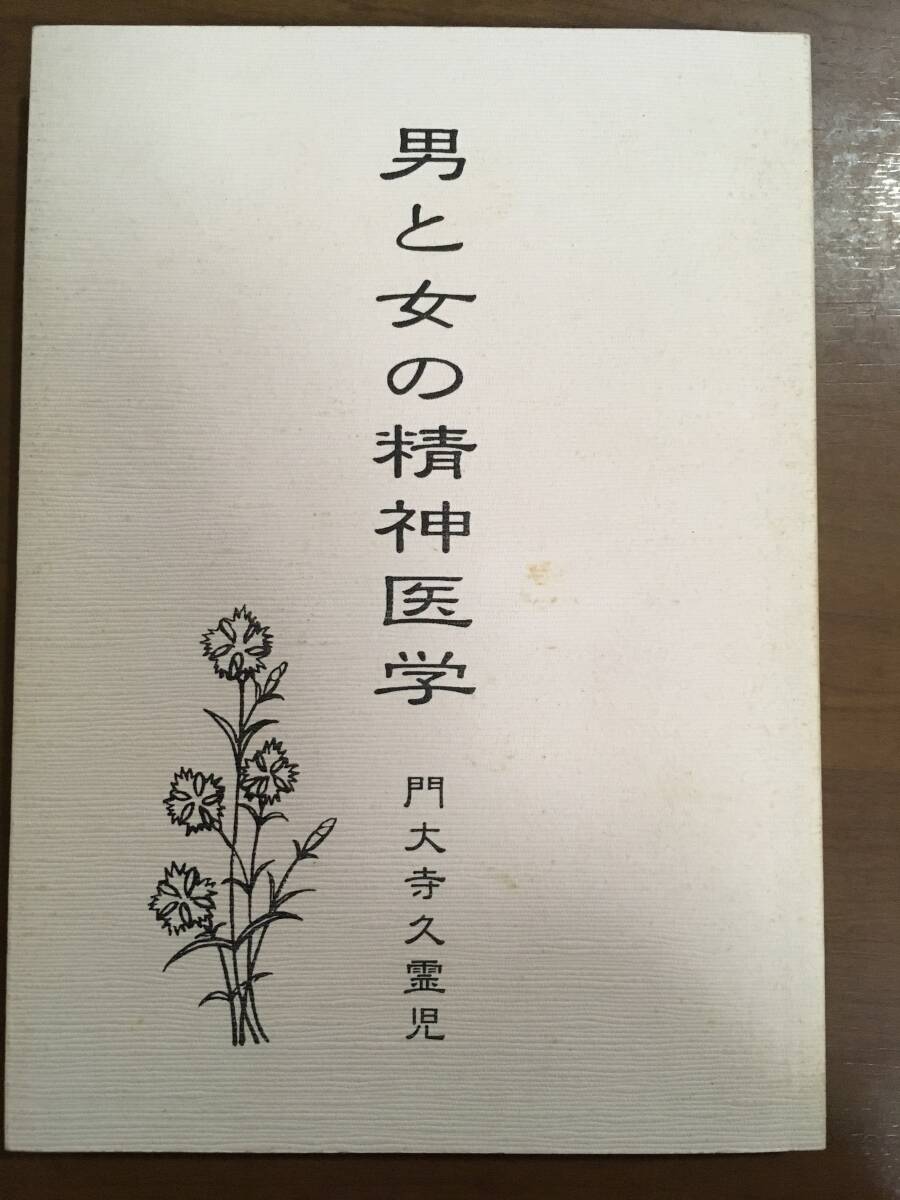 男と女の精神医学
門大寺久霊児